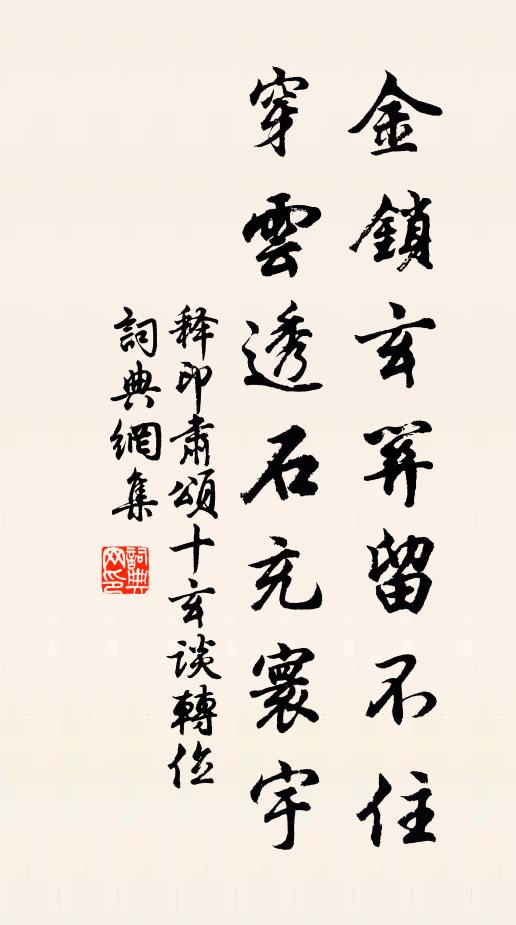 金鎖玄關留不住
穿雲透石充寰宇
释印肅頌十玄談轉位
詞典網集
詞典
网印